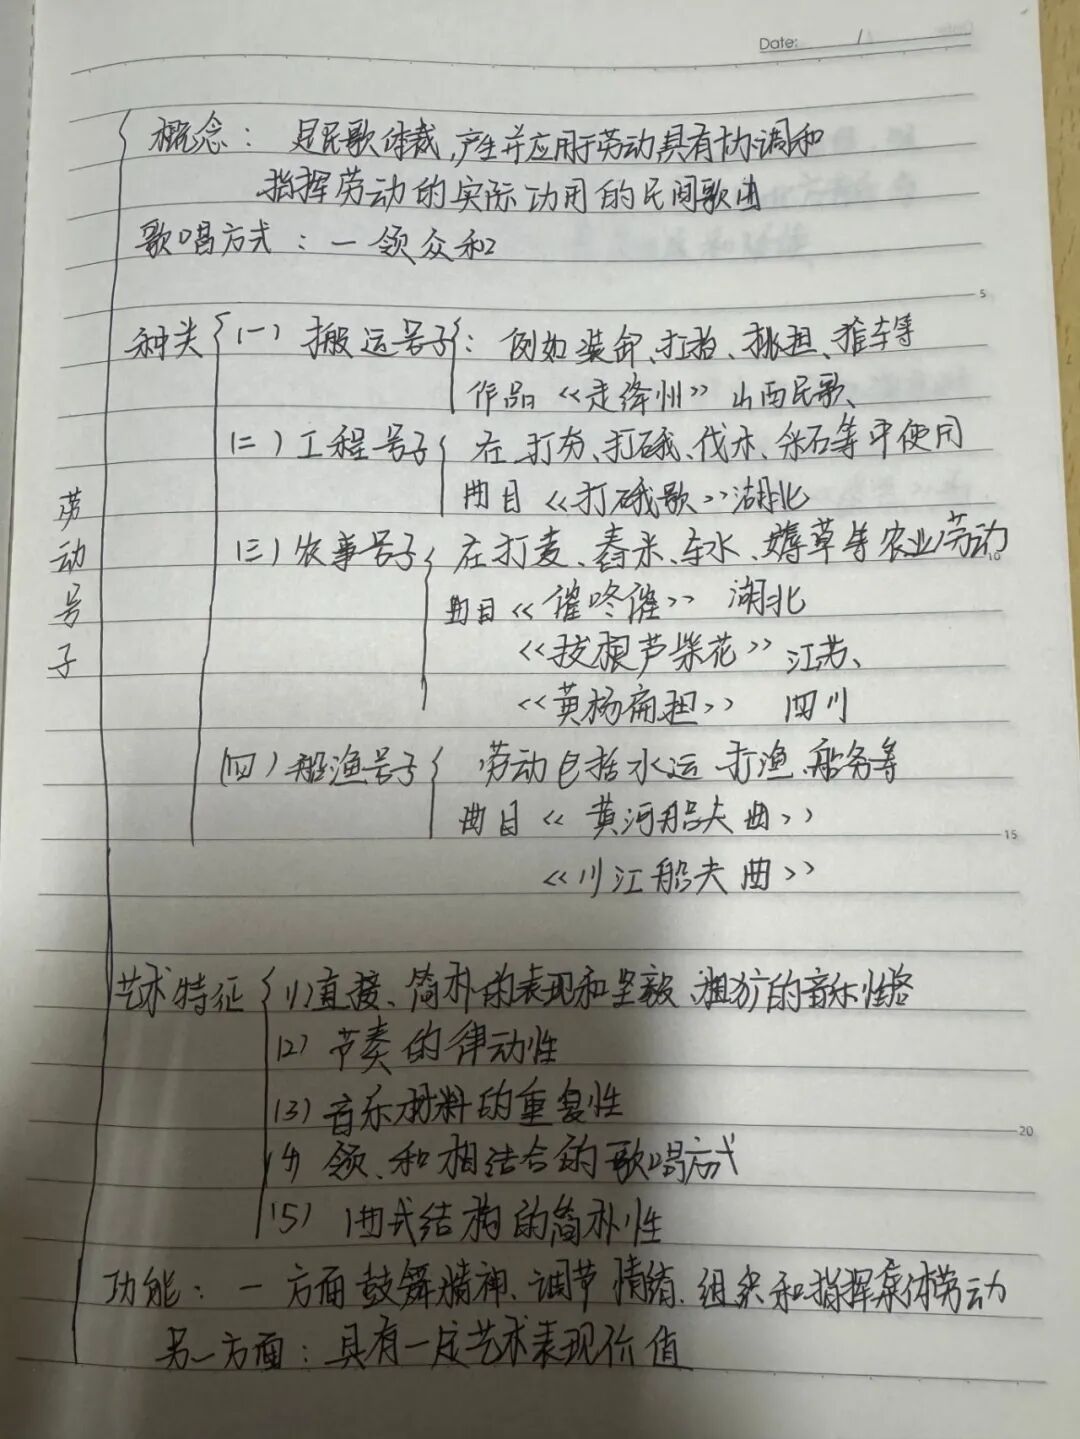 Date:
概念：是民歌体裁,产生并应用于劳动具有协调和
指挥劳动的实际功用的民间歌曲
歌唱方式：一领众和
种类 (一)搬运号子：例如装卸、打抬、挑担、推车等
作品《走绛州》山西民歌、
(二)工程号子 在打夯、打硪、伐木、采石等中使用
曲目《打硪歌》湖北
(三)农事号子 在打麦、舂米、车水、薅草等农业劳动
曲目《催咚催》湖北
《拔根芦柴花》江苏、
《黄杨扁担》四川
(四)船渔号子 劳动包括水运 打渔、船务等
曲目《黄河船夫曲》
《川江船夫曲》
劳动号子
艺术特征 (1)直接、简朴的表现和坚毅、粗犷的音乐性格
(2)节奏的律动性
(3)音乐材料的重复性
(4)领、和相结合的歌唱方式
(5)曲式结构的简朴性
功能：一方面鼓舞精神、调节情绪、组织和指挥集体劳动
另一方面：具有一定艺术表现价值
5
10
15
20